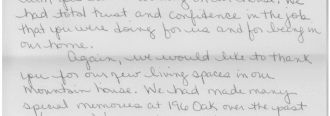 had total trust and confidence in the job
that you were doing for us and for being in
our home.
Again, we would like to thank
you for our new living spaces in our
mountain house. We had made many
special memories at 196 Oak over the past